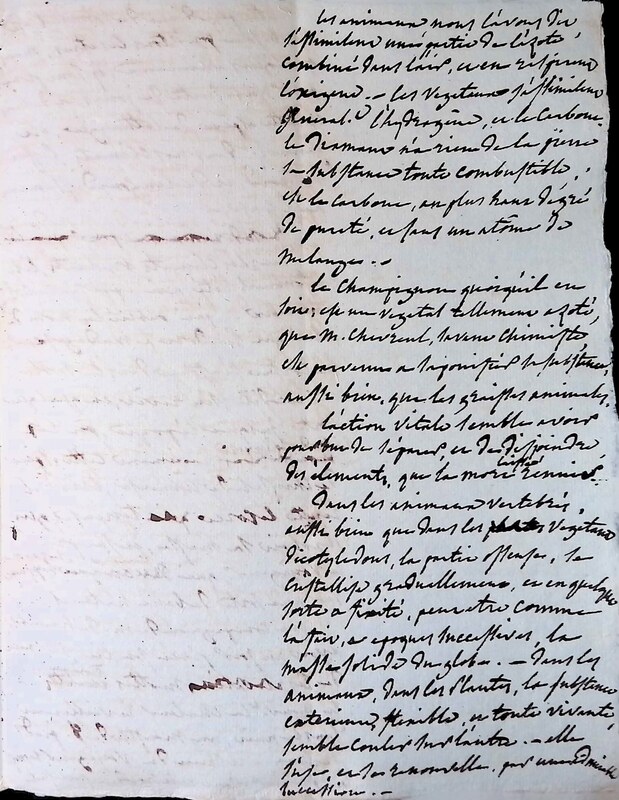 les animaux nous l'avons dit
s'assimilent une partie de l'azote,
combiné dans l'air, et en respirent
l'oxigene. – les vegetaux s'assimilent
général.t l'hydrogène, et le carbone.
le Diamant n'a rien de la pierre
sa substance toute combustible,
est le carbone, au plus haut dégré
de pureté, et sans un atôme de
melange. –
le Champignon quoiqu'il en
soit, est un vegetal tellement azoté,
que M. Chevreul, savant chimiste,
est parvenu a saponifier sa substance,
aussi bien, que les graisses animales.
l'action vitale semble avoir
pour but de séparer, et de disjoindre
des élements, que la mort réunit.
Dans les animaux vertebrés,
aussi bien que dans les vegetaux
dicotyledons, la partie osseuse, se
cristallise graduellement, et en quelque
sorte a fixité, peut etre comme
l'a fait, a epoques successives, la
masse solide du globe. – dans les
animaux, dans les plantes, la substance
exterieure, flexible, et toute vivante,
semble couler sur l'autre. – elle
s'use, et se renouvelle, par une
succession. –